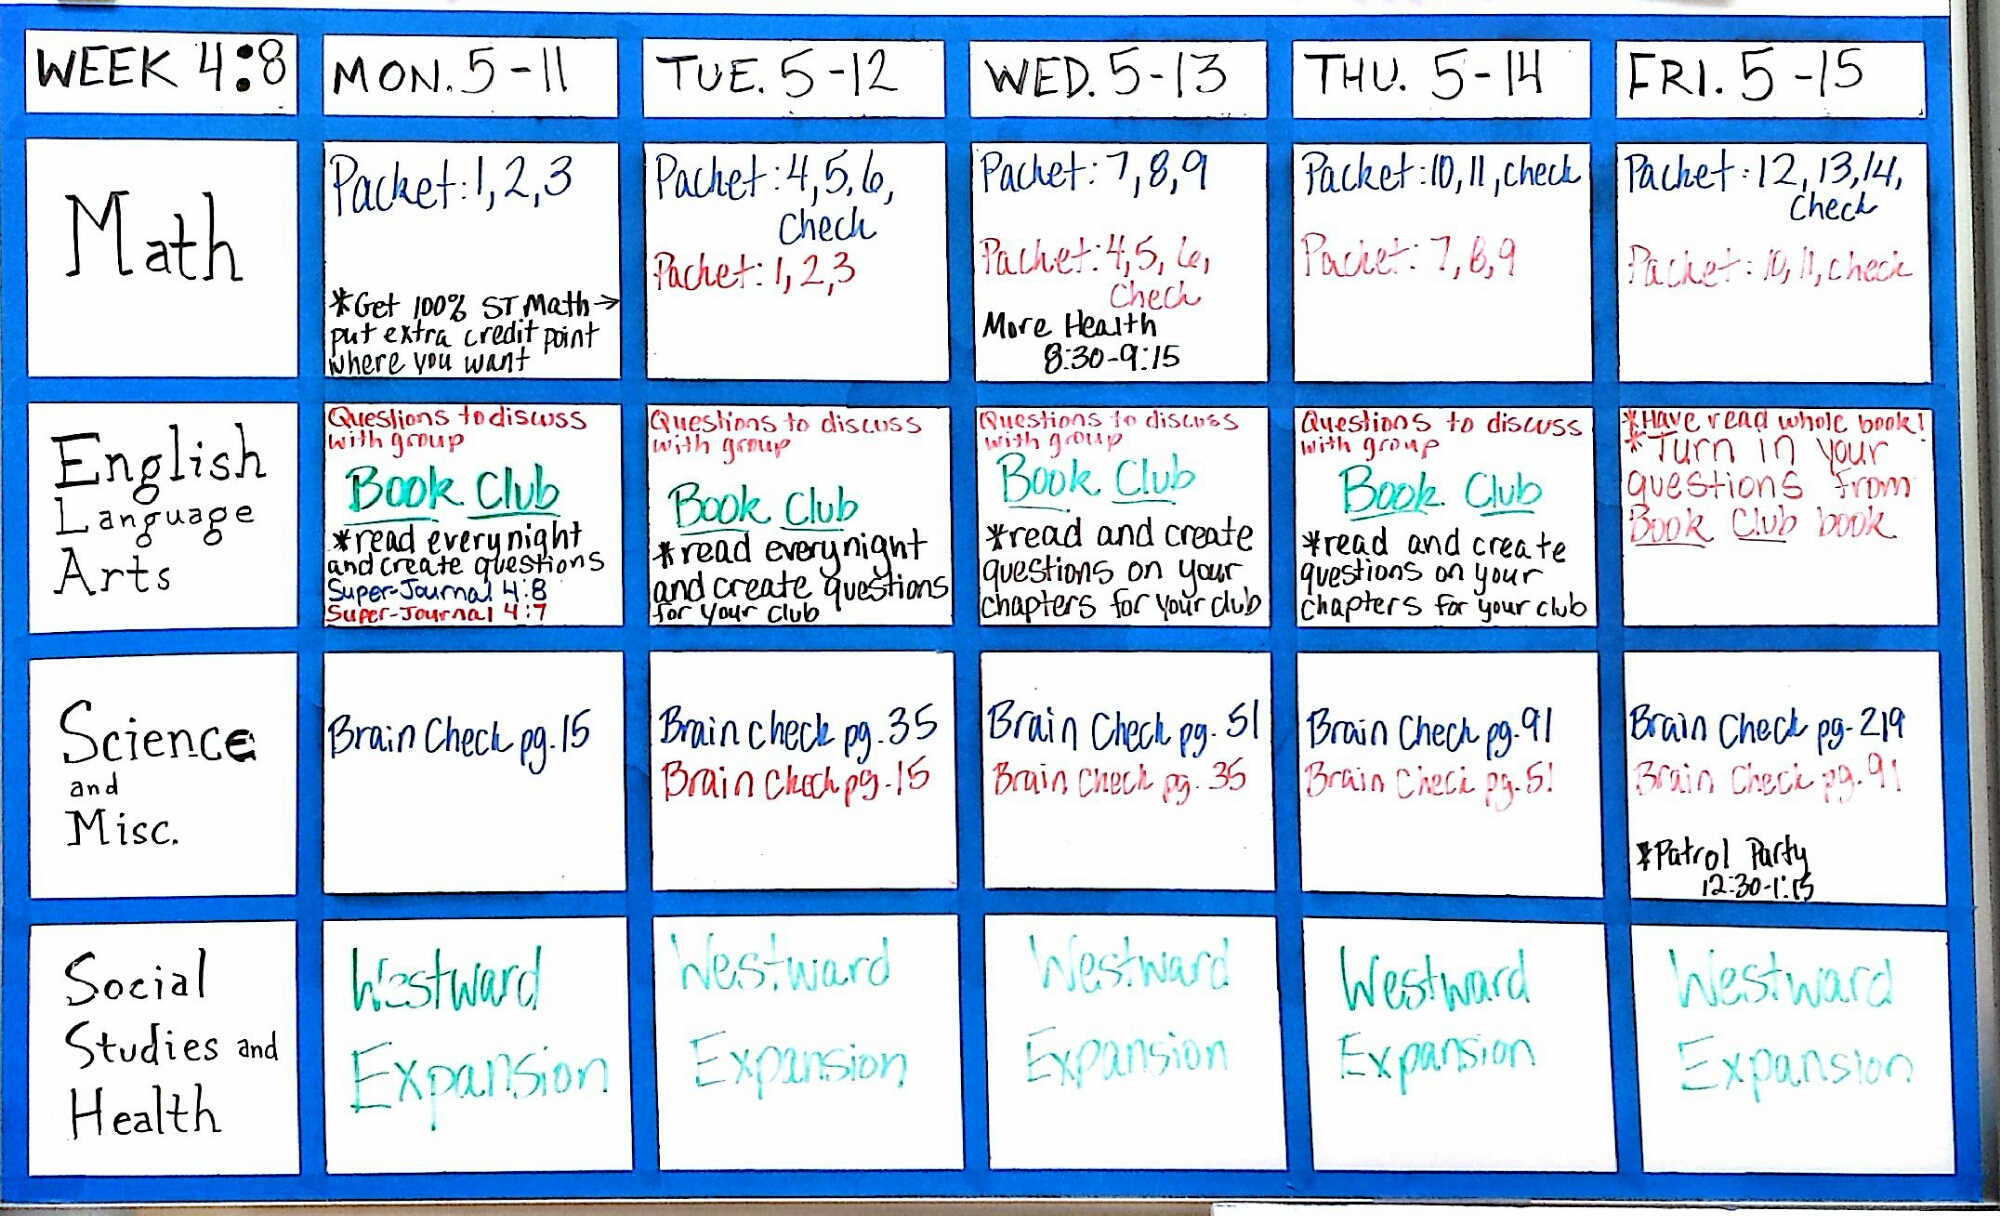 WEEK 4:8
MON. 5-11
TUE. 5-12
WED. 5-13
THU. 5-14
FRI. 5-15
Math
Packet: 1, 2, 3
*Get 100% ST Math →
put extra credit point
where you want
Packet: 4, 5, 6,
check
Packet: 1, 2, 3
Packet: 7, 8, 9
Packet: 4, 5, 6,
check
More Health
8:30-9:15
Packet: 10, 11, check
Packet: 7, 8, 9
Packet: 12, 13, 14,
check
Packet: 10, 11, check
English
Language
Arts
Questions to discuss
with group
Book Club
*read every night
and create questions
Super-Journal 4:8
Super-Journal 4:7
Questions to discuss
with group
Book Club
*read every night
and create questions
for your club
Questions to discuss
with group
Book Club
*read and create
questions on your
chapters for your club
Questions to discuss
with group
Book Club
*read and create
questions on your
chapters for your club
*Have read whole book!
*Turn in your
questions from
Book Club book
Science
and
Misc.
Brain Check pg. 15
Brain check pg. 35
Brain Check pg. 15
Brain Check pg. 51
Brain Check pg. 35
Brain Check pg. 91
Brain Check pg. 51
Brain Check pg. 219
Brain Check pg. 91
*Patrol Party
12:30-1:15
Social
Studies and
Health
Westward
Expansion
Westward
Expansion
Westward
Expansion
Westward
Expansion
Westward
Expansion